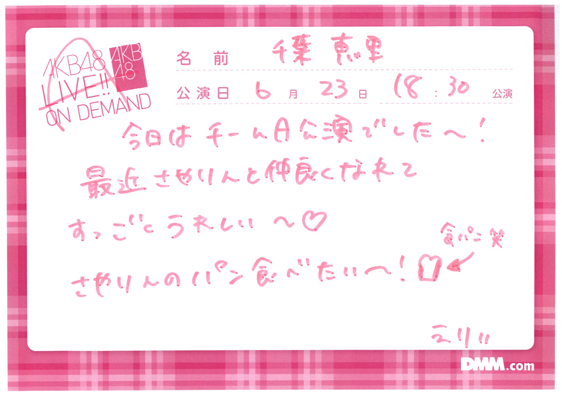 AKB48
LIVE!!
ON DEMAND
AKB
48
名前 千葉 恵里
公演日 6月 23日 18:30 公演
今日はチームA公演でした〜!
最近さやりんと仲良くなれて
すっごくうれしい〜♡
食パン笑
さやりんのパン食べたい〜!
えりい
DMM.com